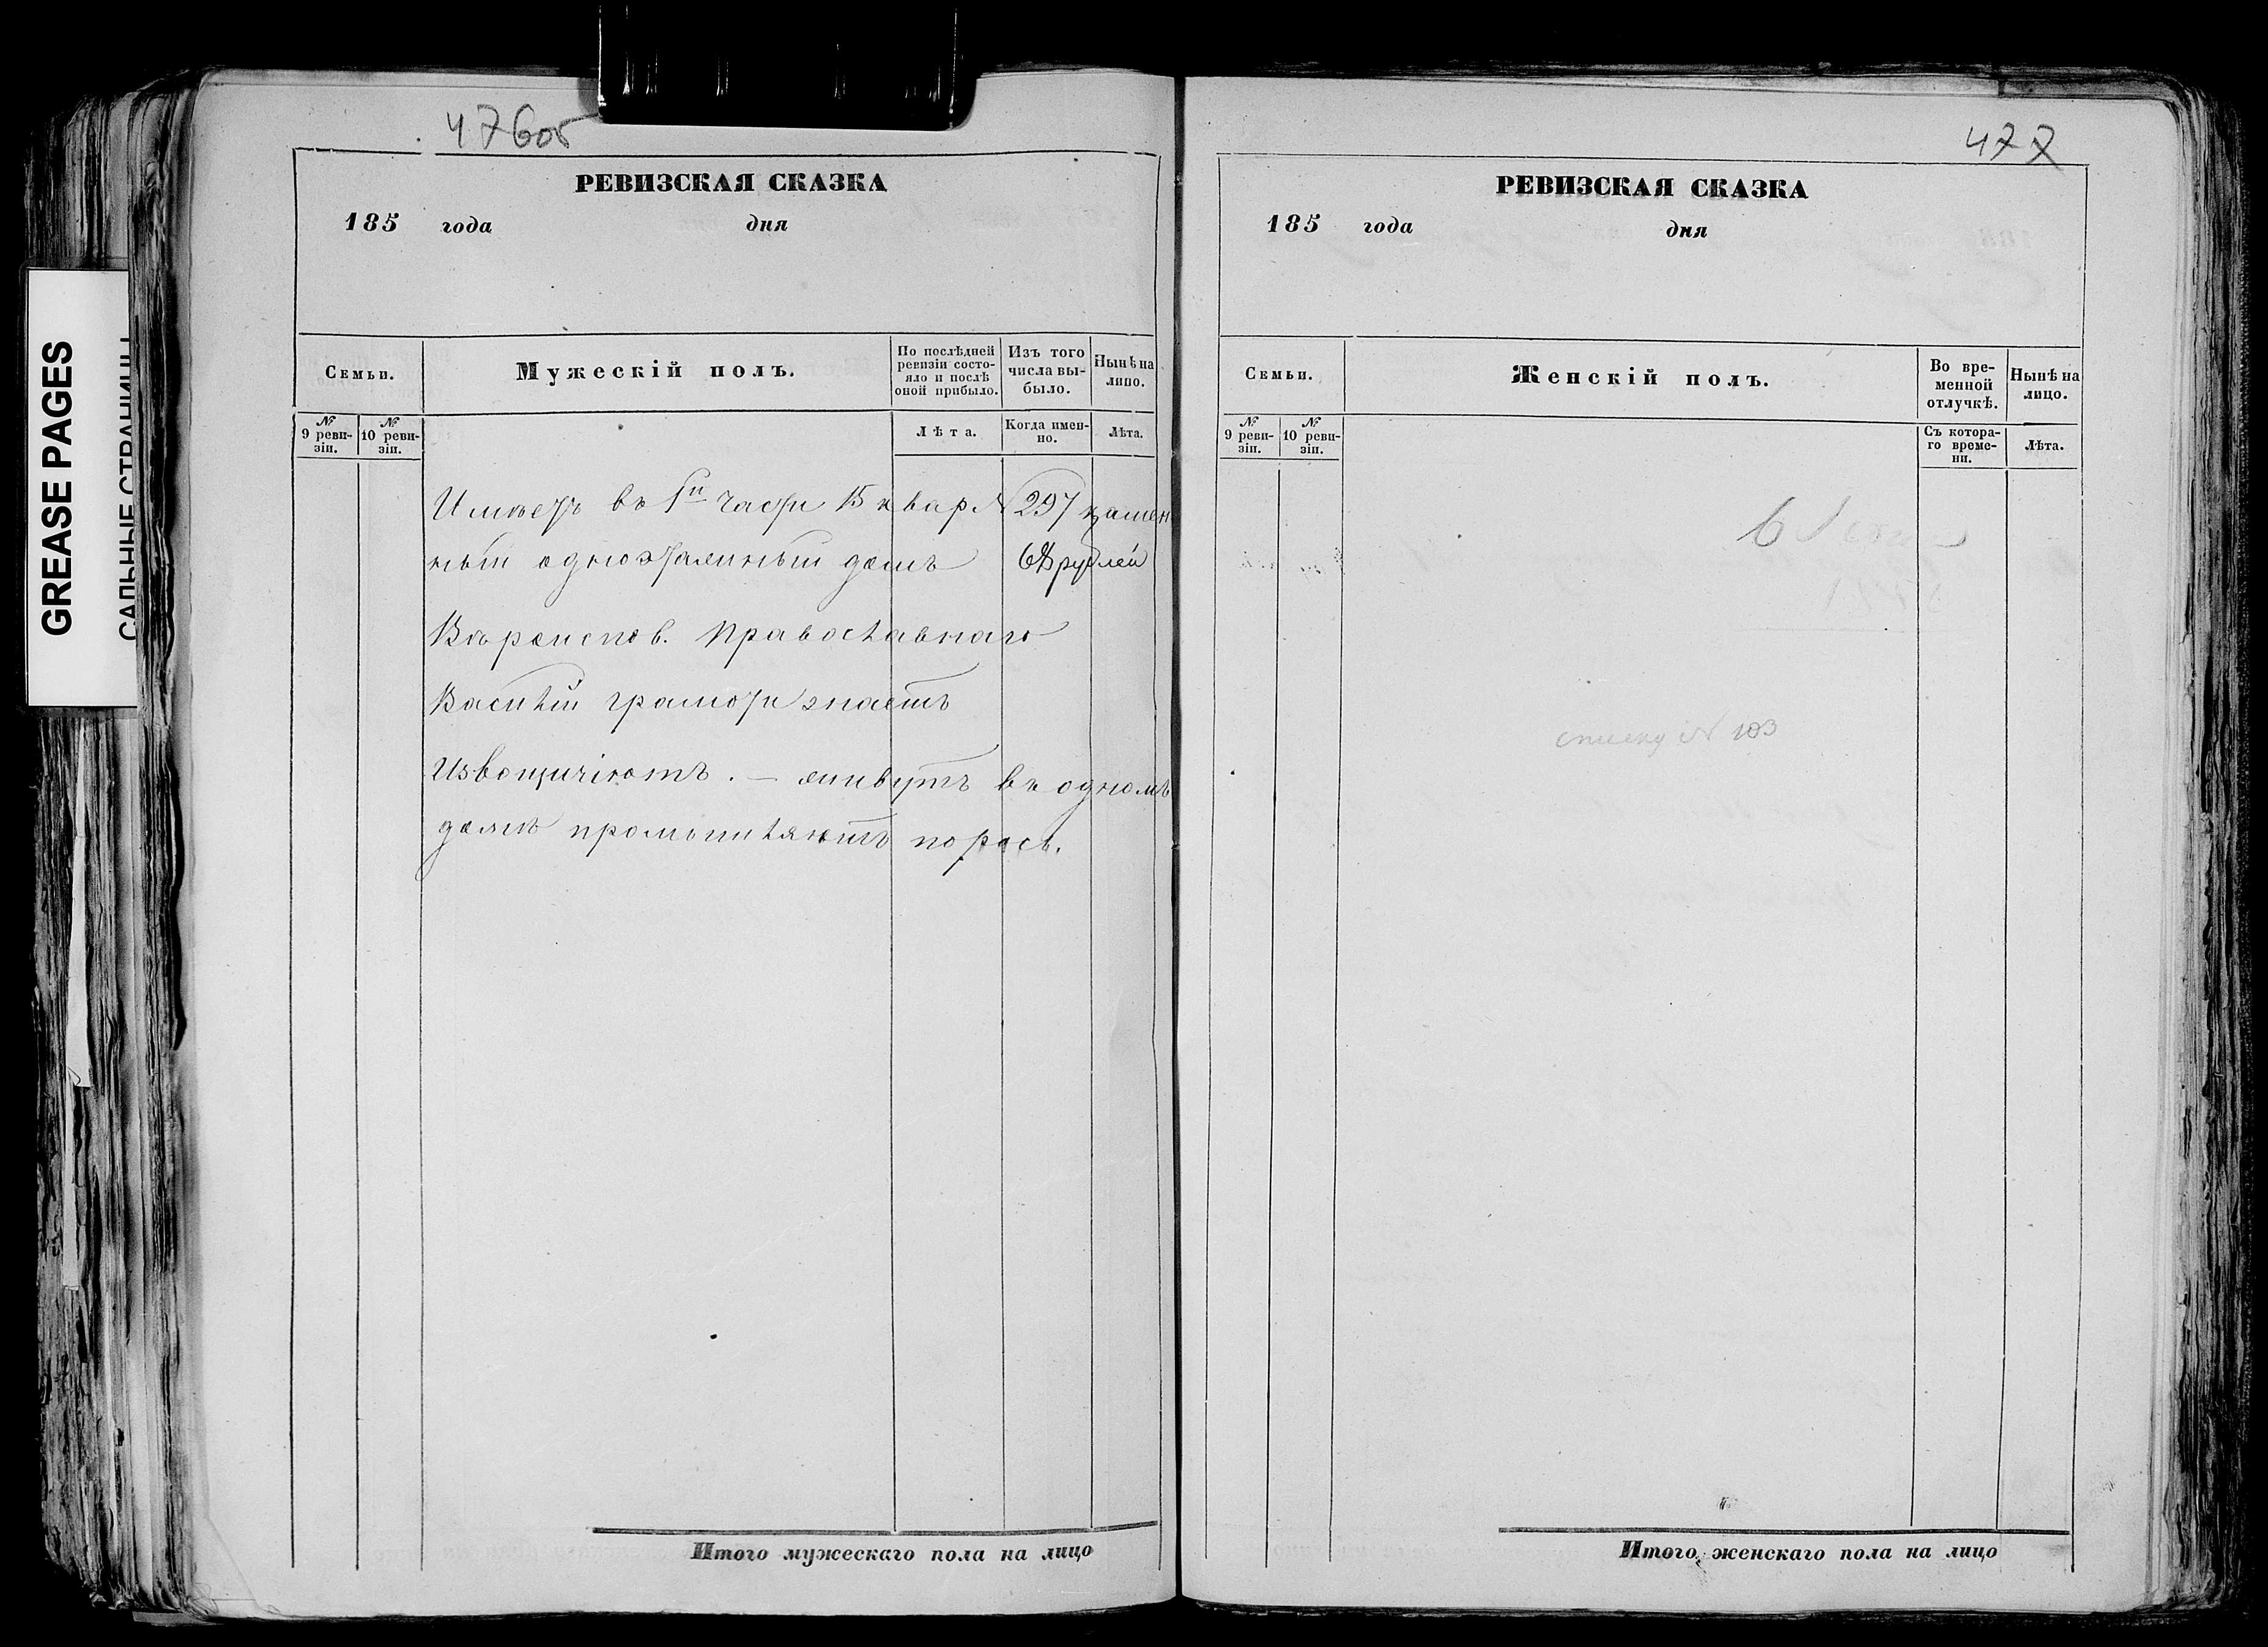 476об
РЕВИЗСКАЯ СКАЗКА
185 года дня
Семьи.
Мужескій полъ.
По послѣдней ревизіи состояло и послѣ оной прибыло.
Изъ того числа выбыло.
Нынѣ на лицо.
№ 9 ревизіи.
№ 10 ревизіи.
Лѣта.
Когда именно.
Лѣта.
Имѣетъ въ 1й части 15 квар № 297 камен
ный одноэтажный домъ рублей
Вѣроиспов. Православнаго
Василій грамоти знаетъ
Извощичіютъ. — живутъ въ одномъ
домѣ промышляютъ порось.
Итого мужескаго пола на лицо
477
РЕВИЗСКАЯ СКАЗКА
185 года дня
Семьи.
Женскій полъ.
Во временной отлучкѣ.
Нынѣ на лицо.
№ 9 ревизіи.
№ 10 ревизіи.
Съ котораго времени.
Лѣта.
списку № 103
Итого женскаго пола на лицо
GREASE PAGES
САЛЬНЫЕ СТРАНИЦЫ